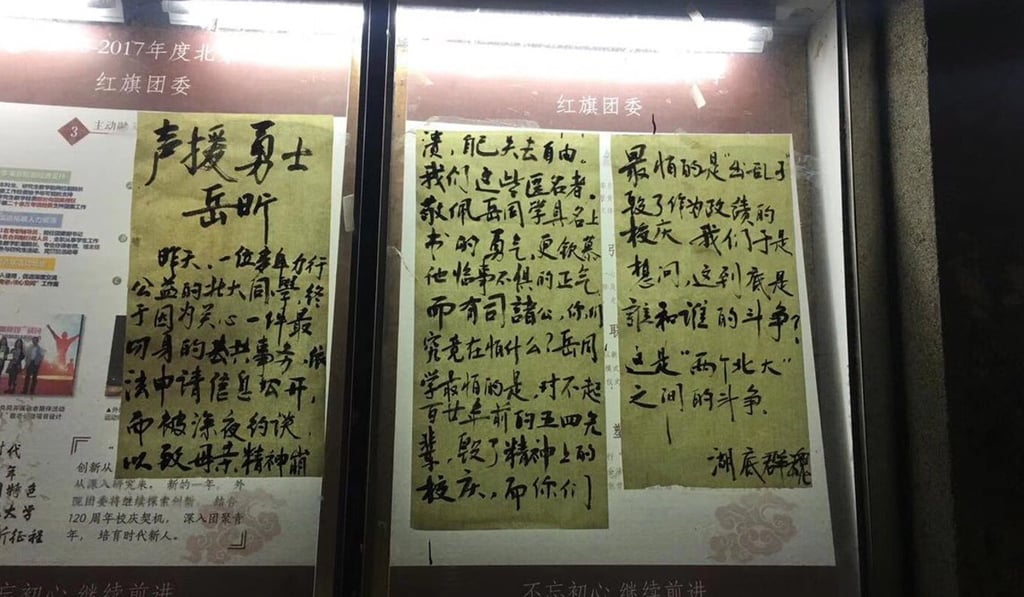 -2017年度北
红旗团委
3 主动融
声援勇士
岳昕
昨天,一位常年力行
公益的北大同學,终
于因为关心一件最
切身的公共事务,依
法申请信息公开,
而被深夜约谈,
以致母亲精神崩
创新从
从深入研究来。新的一年,外
院团委将继续探索创新,结合
120周年校庆契机,深入团聚青
年,培育时代新人。
时代
年
国特色
大学
新征程
忘初心 继续前进
红旗团委
溃,自己失去自由。
我们这些匿名者,
敬佩岳同学具名上
书的勇气,更钦慕
他临事不惧的正气
而有司諸公,你们
究竟在怕什么?岳同
学最怕的是,对不起
百廿年前的五四先
辈,毁了精神上的
校庆,而你们
最怕的是"出乱子"
毁了作为政绩的
校庆。我们于是
想问,这到底是
誰和谁的斗争?
这是"两个北大"
之间的斗争。
湖底群魂
不忘初心 继续前进